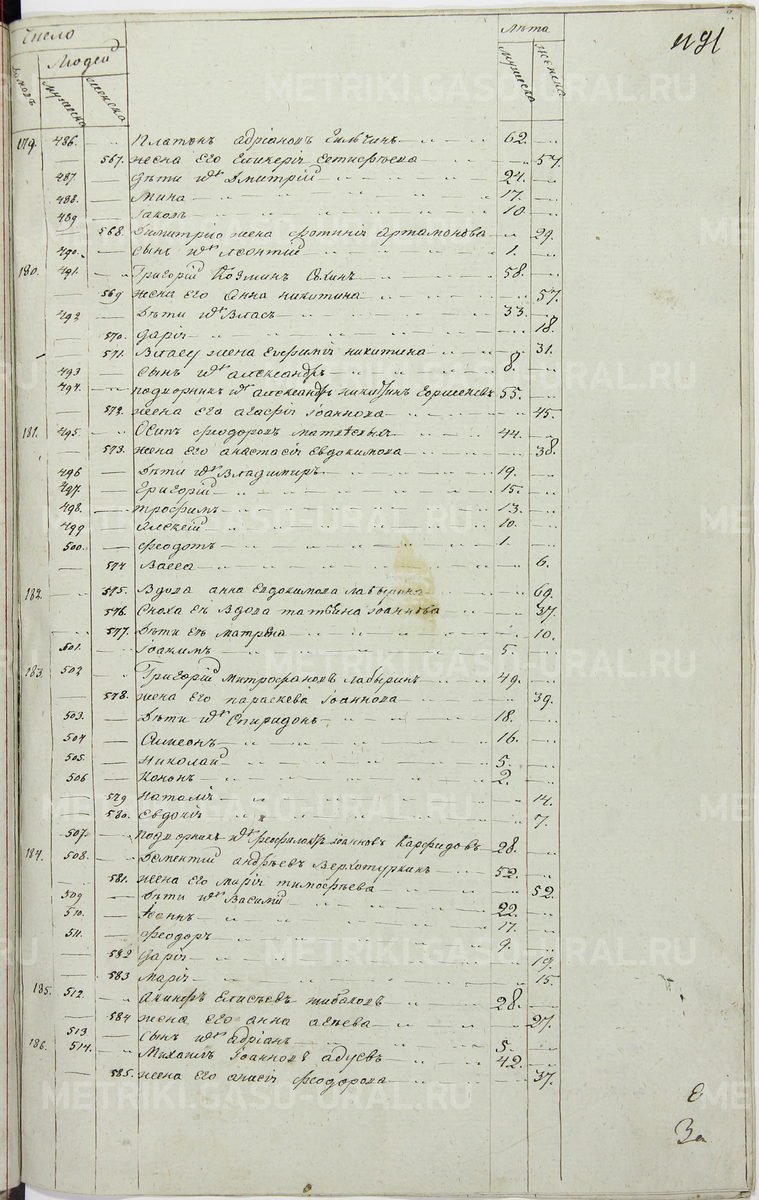 Число
Людей
Домовъ мужеска женска
Лѣта
мужеска женска
1191
179. 486. Платонъ Адріановъ 62.
567. жена его Гликерія 57.
487 Дѣти ихъ Дмитрій 24.
488. Мина 17.
489 Іаковъ 10
568. Димитрію жена Фотинія Артамонова 29.
490. Сынъ ихъ Леонтій 1.
180. 491. Григорій Козминъ 58.
569 жена его Анна Никитина 57.
492 Дѣти ихъ Власъ 33.
570. Дарія 18.
571. Власу жена Евфимія Никитина 31.
493 Сынъ ихъ Александръ 8.
494. подворникъ Александръ Никитинъ 55.
572. жена его Агафія Іоаннова 45.
181. 495. Осипъ Феодоровъ 44.
573. жена его Анастасія Евдокимова 38.
496 Дѣти ихъ Владимиръ 19.
497. Григорій 15.
498. Трофимъ 13.
499 Алексій 10.
500. Феодотъ 1.
574 Васса 6.
182. 575. Вдова Анна Евдокимова Лабырина 69.
576. Сноха ея вдова Татіана Іоаннова 37.
577. Дѣти ея Матрена 10.
501. Іоакимъ 5.
183. 502 Григорій Митрофановъ Лабыринъ 49.
578. жена его Параскева Іоаннова 39.
503. Дѣти ихъ Спиридонъ 18.
504 Симеонъ 16.
505. Николай 5.
506 Кононъ 2.
579 Наталія 14.
580. Евдокія 7.
507. подворникъ Феофилактъ Іоанновъ Карфидовъ 28.
184. 508. Дементій Андрѣевъ Верхотуркинъ 52.
581. жена его Марія Тимофѣева 52.
509 Дѣти ихъ Василій 22.
510. Іоаннъ 17.
511. Феодоръ 9.
582 Дарія 19.
583 Марія 15.
185. 512. Акинфъ Елисѣевъ 28.
584 жена его Анна 27.
513 Сынъ ихъ Адріанъ 5.
186. 514. Михаилъ Іоанновъ 42.
585. жена его Анисія Феодорова 37.
METRIKI.GASO-URAL.RU